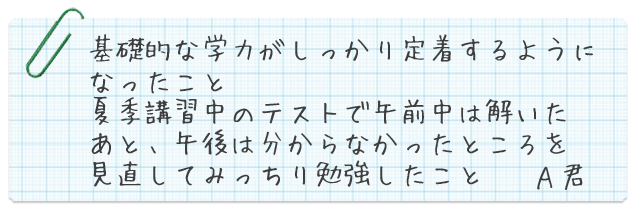 基礎的な学力がしっかり定着するように
なったこと
夏季講習中のテストで午前中は解いた
あと、午後は分からなかったところを
見直してみっちり勉強したこと　A君